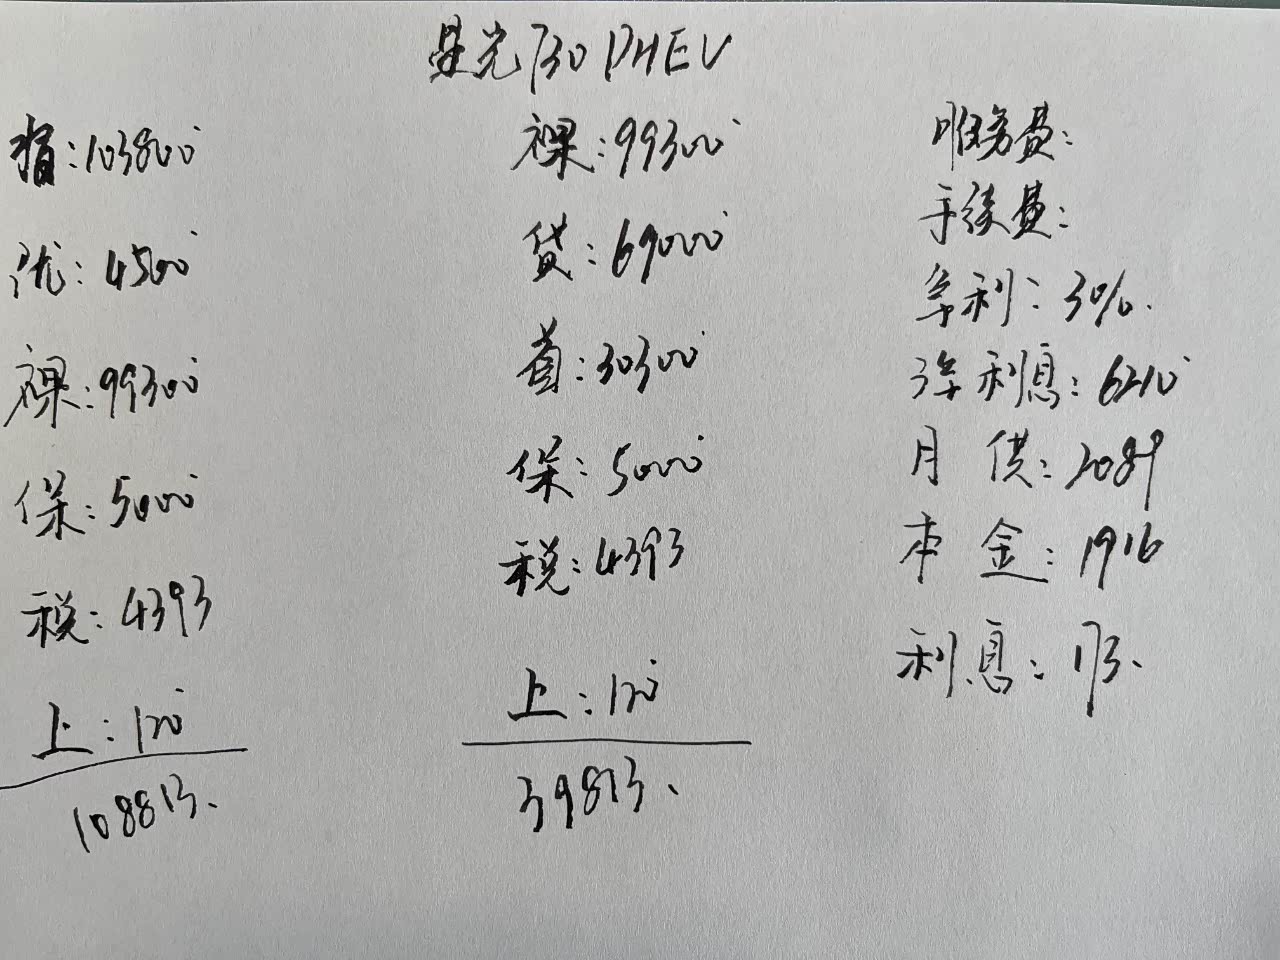 星光730 PHEV
指:103800
优:4500
裸:99300
保:5000
税:4393
上:120
108813.
裸:99300
贷:69000
首:30300
保:5000
税:4393
上:120
39813.
服务费:
手续费:
年利:3%.
总利息:6210
月供:2089
本金:1916
利息:173.